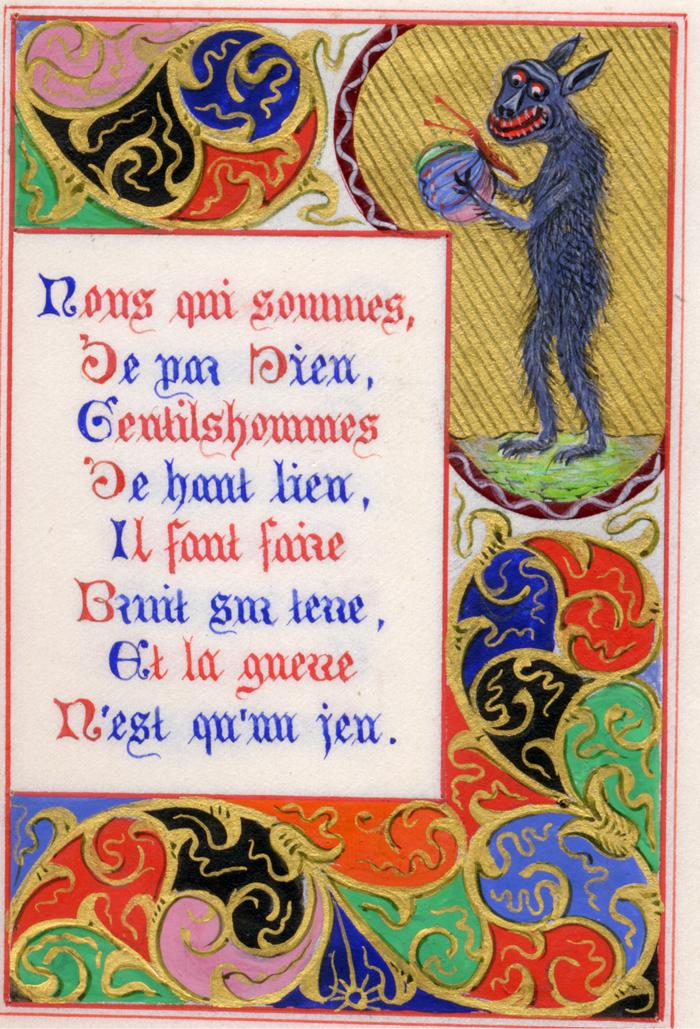 Nous qui sommes,
De par Dieu,
Gentilshommes
De haut lieu,
Il faut faire
Bruit sur terre,
Et la guerre
N'est qu'un jeu.